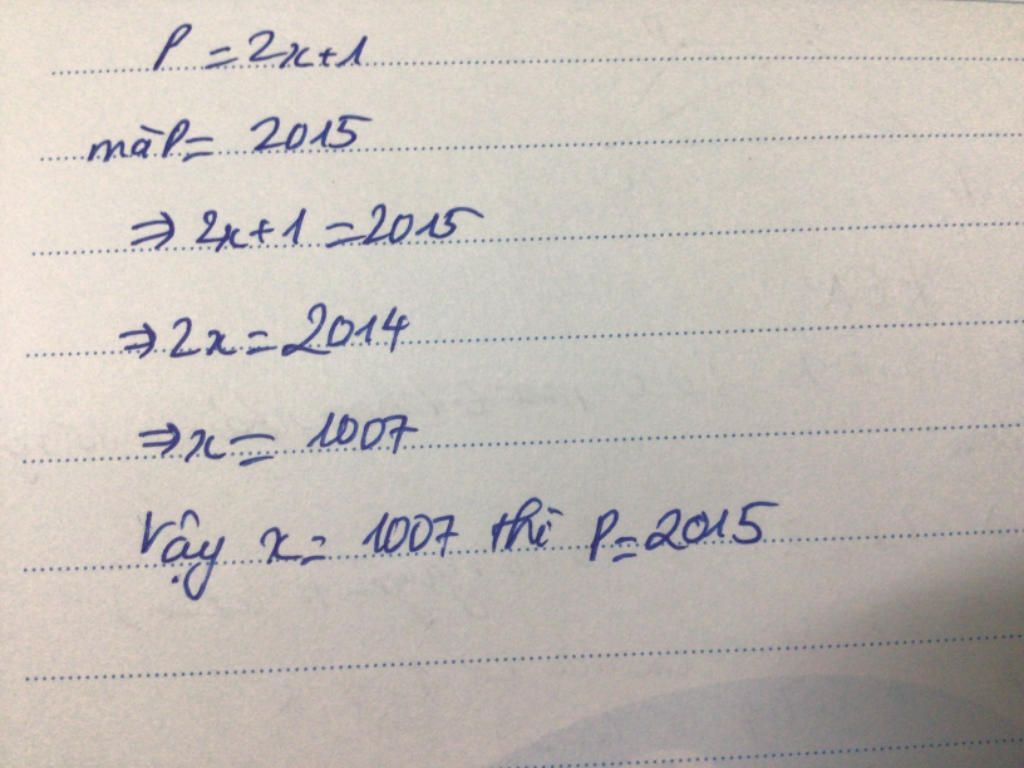 P = 2x+1
mà P = 2015
⇒ 2x+1 = 2015
⇒ 2x = 2014
⇒ x = 1007
Vậy x = 1007 thì P = 2015